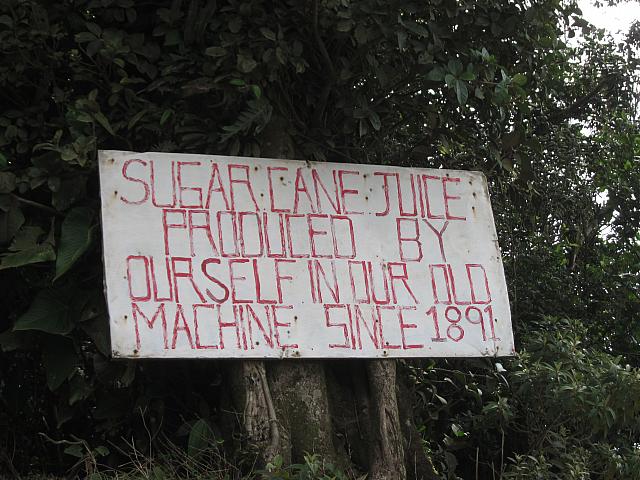 SUGAR CANE JUICE
PRODUCED BY
OURSELF IN OUR OLD
MACHINE SINCE 1891